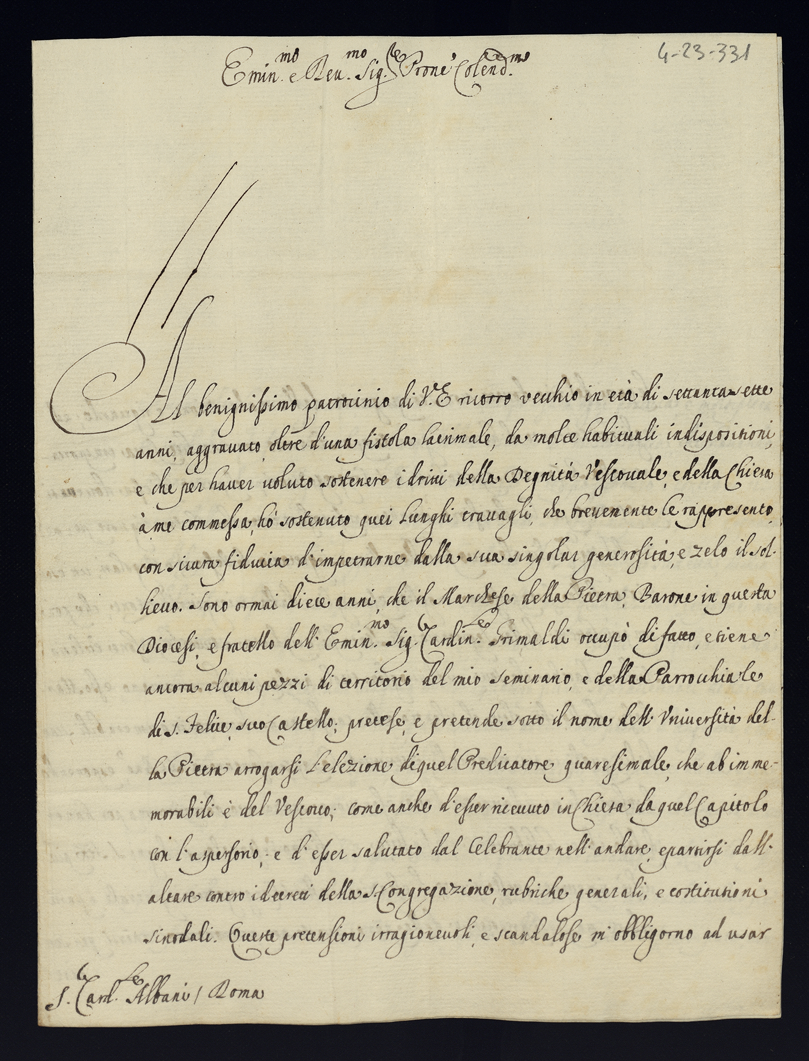 4-23-331
Emin.mo e Reu.mo Sig.re Prone Colend.mo
Al benignissimo patrocinio di V.E ricorro vecchio in età di settanta sette
anni, aggravato oltre d'una fistola lacrimale, da molte habituali indispositioni,
e che per hauer uoluto sostenere i dritti della Degnità Vescouale, e della Chiesa
à me commessa, hò sostenuto quei lunghi trauagli, che breuemente le rappresento,
con sicura fiducia d'impetrarne dalla sua singolar generosità, e zelo il sol-
lieuo. Sono ormai diece anni, che il Marchese della Pietra, Barone in questa
Diocesi, e fratello dell' Emin.mo Sig.r Cardin.le Grimaldi occupò di fatto, e tiene
ancora alcuni pezzi di territorio del mio seminario, e della Parrochiale
di S. Felice, suo Castello; pretese, e pretende sotto il nome dell' Vniversità del-
la Pietra arrogarsi l'elezione di quel Predicatore quaresimale, che ab imme-
morabili è del Vescouo; come anche d'esser riceuuto in Chiesa da quel Capitolo
con l'aspersorio, e d'esser salutato dal Celebrante nell' andare, e partirsi dall'
altare contro i decreti della S. Congregazione, rubriche generali, e costitutioni
sinodali. Queste pretensioni irragioneuoli, e scandalose m'obbligorno ad usar
S.r Card.le Albani / Roma